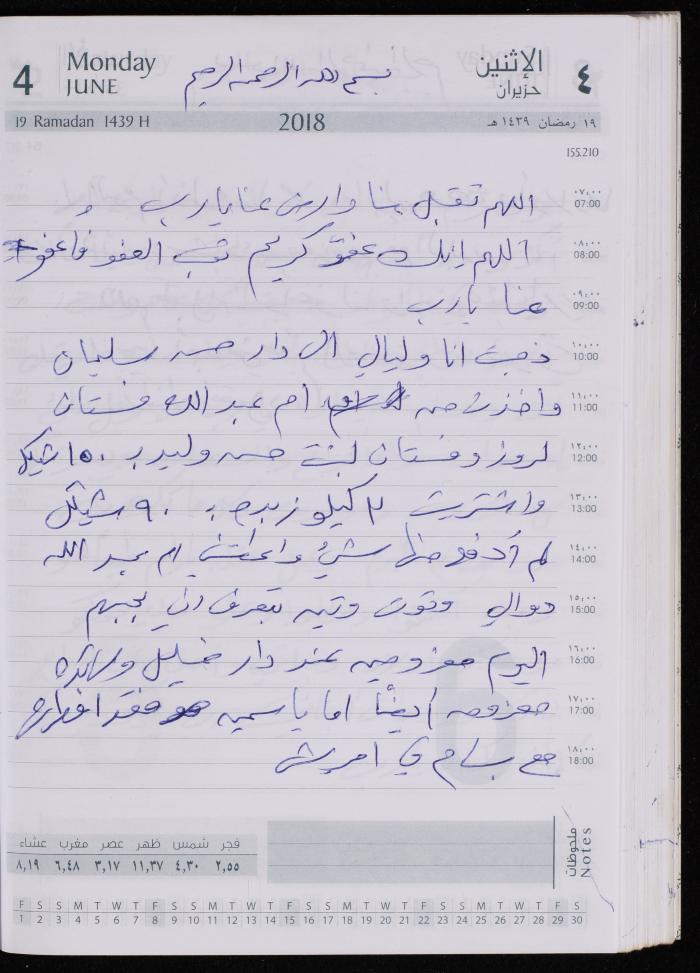 4 Monday JUNE بسم الله الرحمن الرحيم الإثنين حزيران ٤
19 Ramadan 1439 H 2018 ١٩ رمضان ١٤٣٩ هـ
155.210
٠٧:٠٠ 07:00 اللهم تقبل منا وارض عنا يا رب
٠٨:٠٠ 08:00 اللهم إنك عفوّ كريم تحب العفو فاعفو
٠٩:٠٠ 09:00 عنا يا رب
١٠:٠٠ 10:00 ذهبت انا وليالي الى دار حسن سليمان
١١:٠٠ 11:00 واخذت من ام عبد الله فستان
١٢:٠٠ 12:00 لروز وفستان لبنت حسن وليد بـ ١٥٠ شيكل
١٣:٠٠ 13:00 واشتريت ٢ كيلو زبدة بـ ٩٠ شيكل
١٤:٠٠ 14:00 لم أدفع منها شيءً واعطتني ام عبد الله
١٥:٠٠ 15:00 دوالي وتوت وتين بتعرف اني بحبهم
١٦:٠٠ 16:00 اليوم معزومين عند دار خليل
١٧:٠٠ 17:00 معزومه أيضًا اما ياسمين فقد افطارها
١٨:٠٠ 18:00 مع بسام في
ملحوظات Notes
فجر شمس ظهر عصر مغرب عشاء
٢,٥٥ ٤,٣٠ ١١,٣٧ ٣,١٧ ٦,٤٨ ٨,١٩
F S S M T W T F S S M T W T F S S M T W T F S S M T W T F S
1 2 3 4 5 6 7 8 9 10 11 12 13 14 15 16 17 18 19 20 21 22 23 24 25 26 27 28 29 30